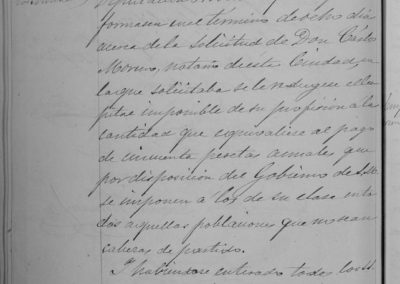 formasen en el término de ocho dias
acerca de la solicitud de Don Cisto
Moreno, notario de esta Ciudad, en
la que solicitaba se le redugese el ca
pital imponible de su profesión a la
cantidad que equivaliese al pago
de cincuenta pesetas anuales que
por disposición del Gobierno de S.M.
se imponen a los de su clase en to
das aquellas poblaciones que no sean
cabezas de partido.
Y habiéndose enterado todos los